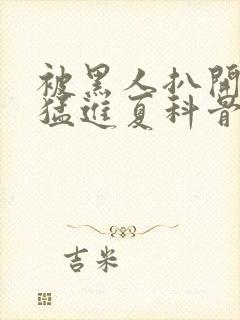 被黑人扒開
猛進夏科普
吉米